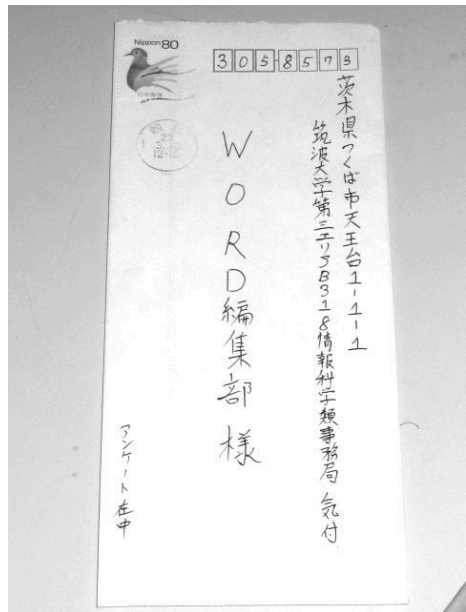 Nippon 80
日本郵便
305-8573
茨木県つくば市天王台1-1-1
筑波大学第三エリアB318情報科学類事務局 気付
WORD編集部 様
アンケート在中